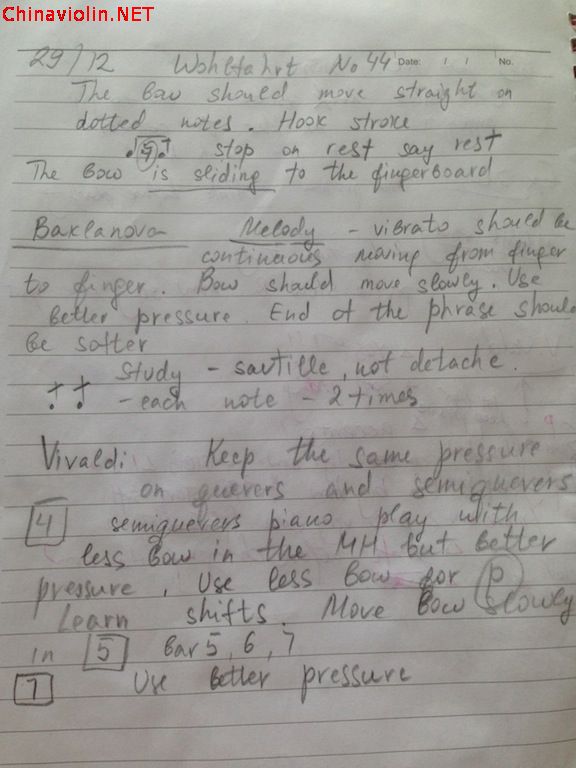 Chinaviolin.NET
29/12 Wohlfahrt No 44 Date: / / No.
The bow should move straight on
dotted notes. Hook stroke
stop on rest say rest
The bow is sliding to the fingerboard
Baklanova Melody - vibrato should be
continuous moving from finger
to finger. Bow should move slowly. Use
better pressure. End of the phrase should
be softer
Study - sautille, not detache.
- each note - 2 times
Vivaldi Keep the same pressure
on quevers and semiquevers
4 semiquevers piano play with
less bow in the MH but better
pressure, Use less bow for p
Learn shifts. Move bow slowly
in 5 bar 5, 6, 7
7 Use better pressure